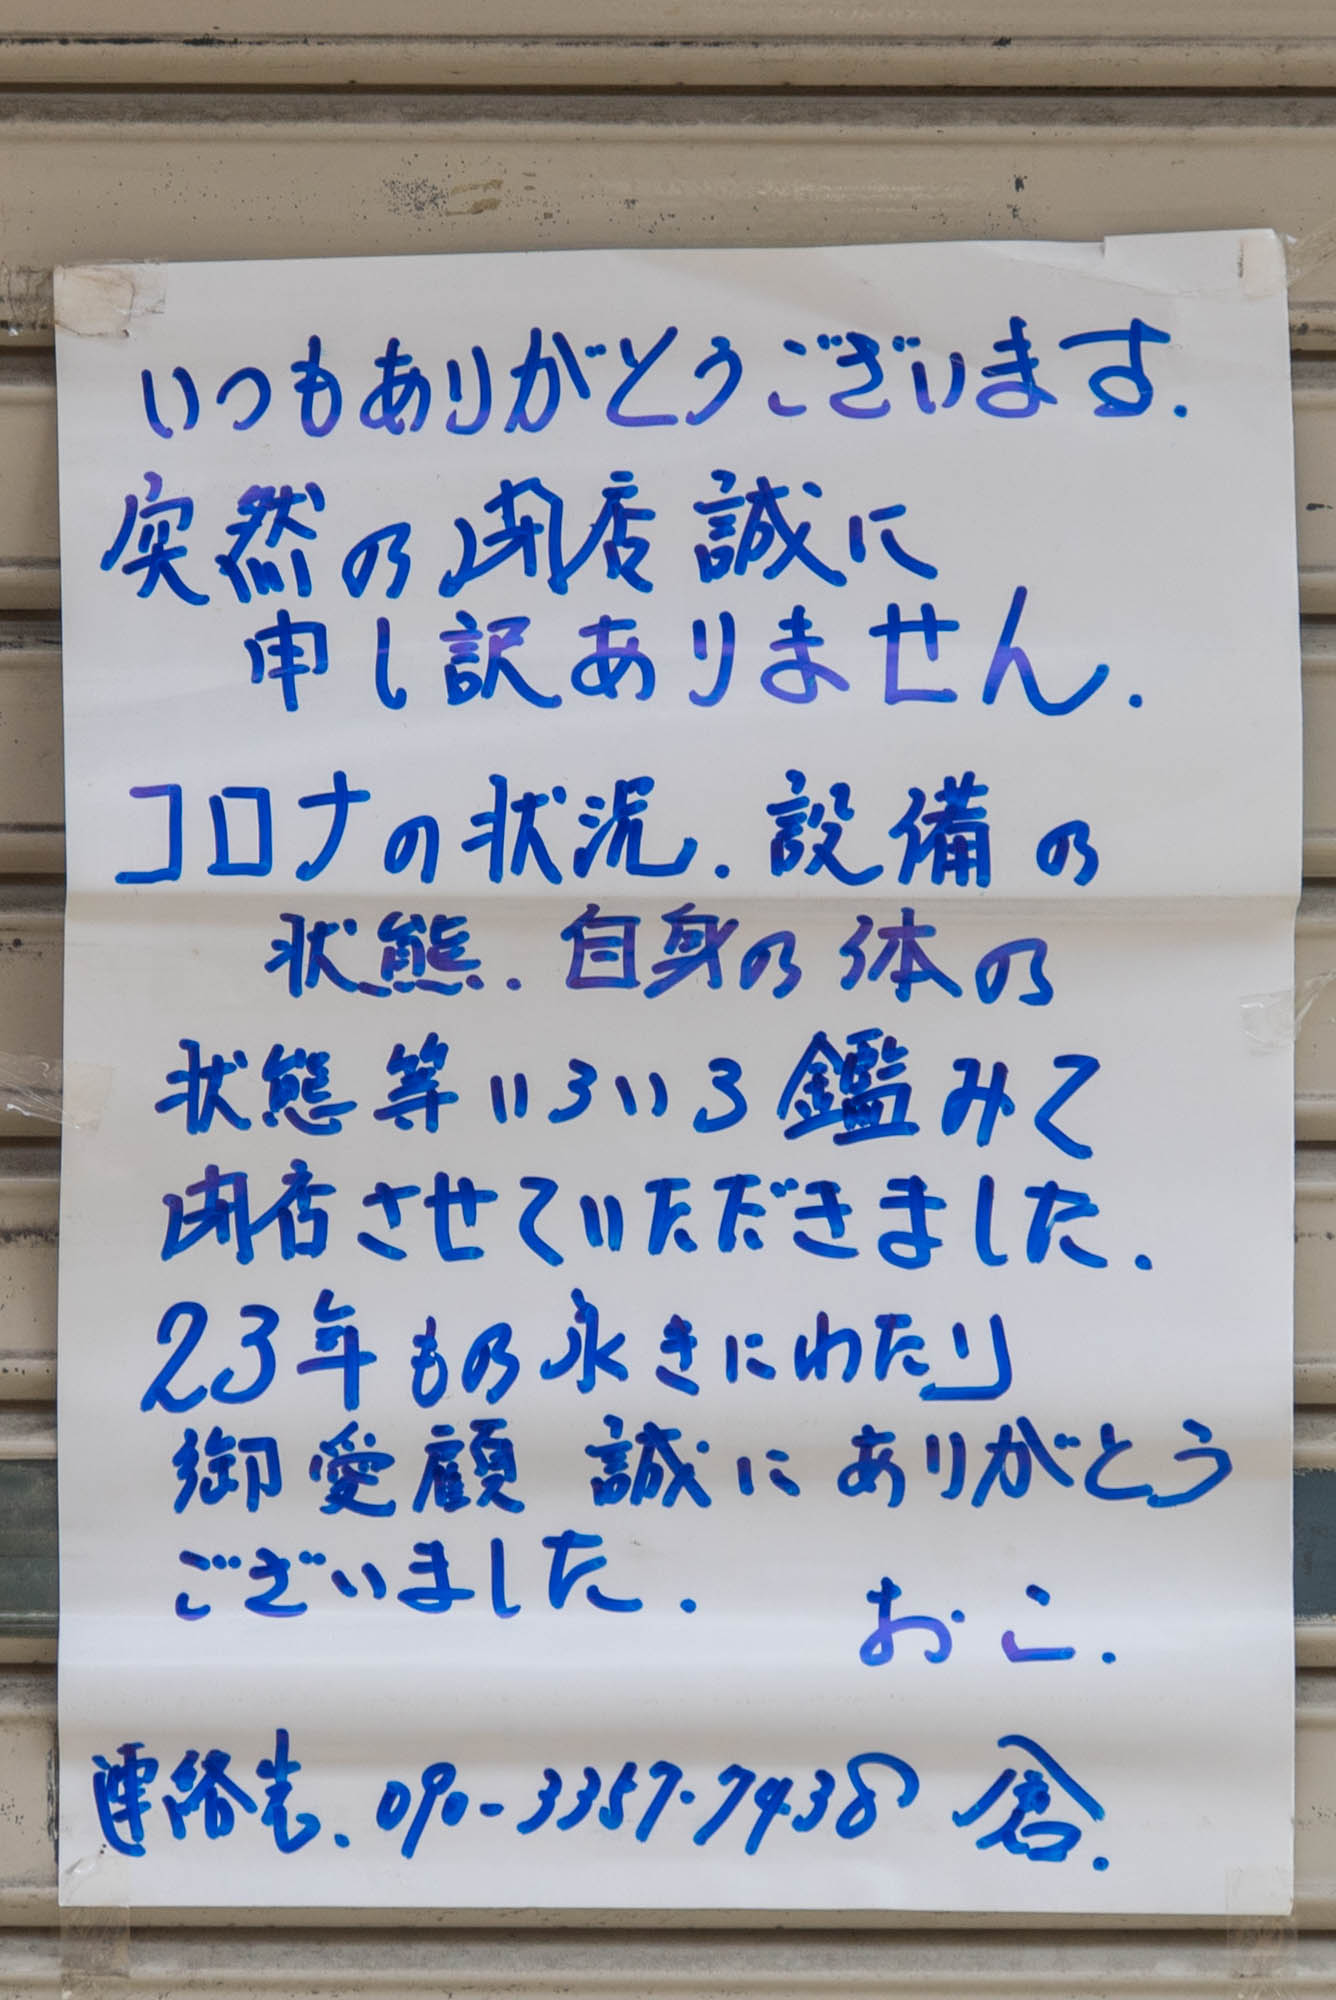 いつもありがとうございます.
突然の閉店誠に
申し訳ありません.
コロナの状況.設備の
状態.自身の体の
状態等いろいろ鑑みて
閉店させていただきました.
23年もの永きにわたり
御愛顧 誠にありがとう
ございました.
おこ.
連絡先.090-3357-7438 倉.